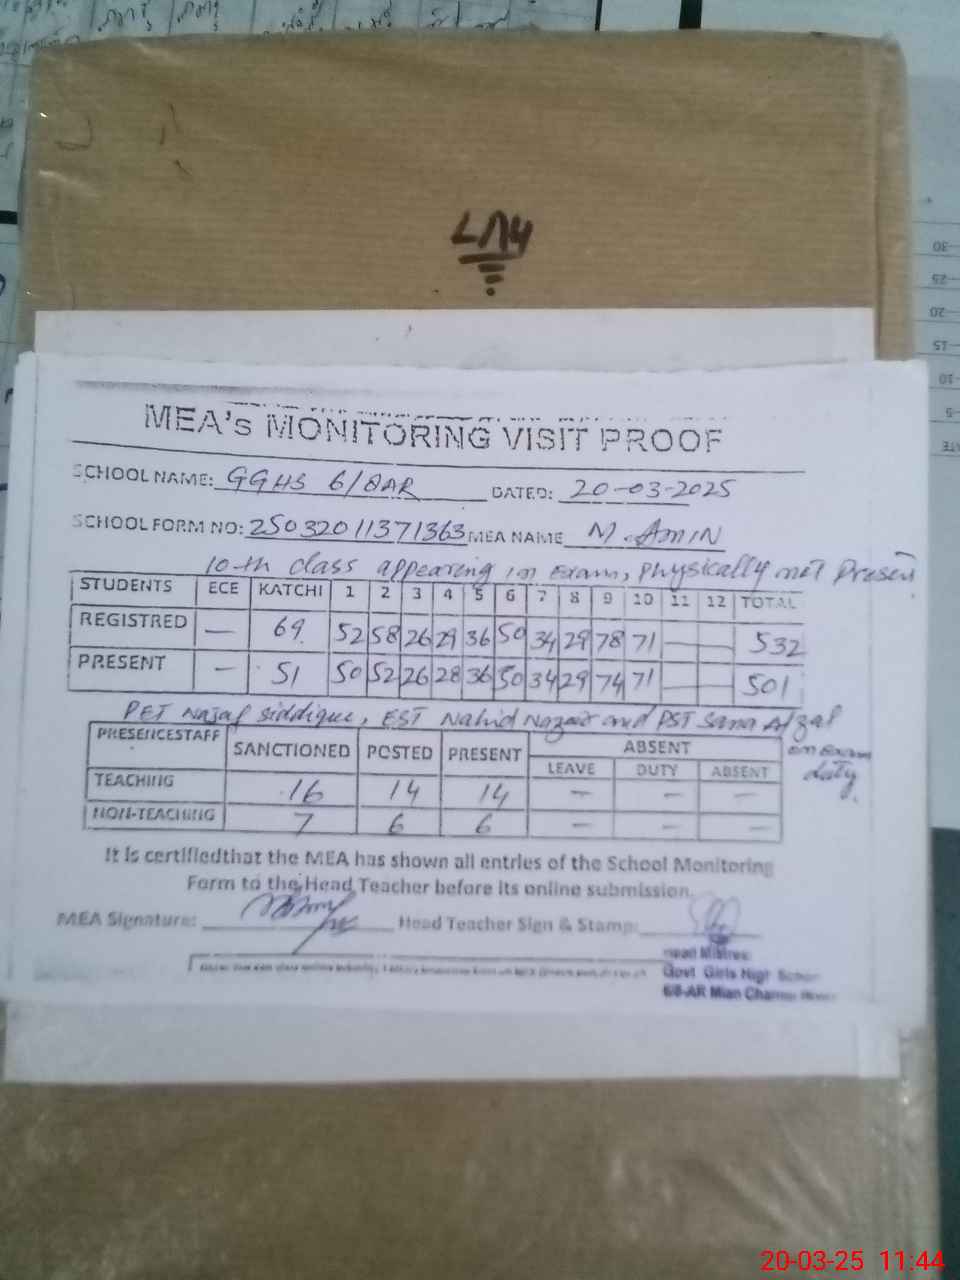 LM4
MEA's MONITORING VISIT PROOF
SCHOOL NAME: GGHS 6/8AR DATED: 20-03-2025
SCHOOL FORM NO: 25032011371363 MEA NAME M. AMIN
10th class appearing in Exam, Physically not Present
STUDENTS ECE KATCHI 1 2 3 4 5 6 7 8 9 10 11 12 TOTAL
REGISTRED — 69 52 58 26 29 36 50 34 29 78 71 — — 532
PRESENT — 51 50 52 26 28 36 50 34 29 74 71 — — 501
PET Najaf Siddique, EST Nahid Nazair and PST Sana Afzal on Exam duty.
PRESENCESTAFF SANCTIONED POSTED PRESENT ABSENT
LEAVE DUTY ABSENT
TEACHING 16 14 14 — — —
NON-TEACHING 7 6 6 — — —
It is certifiedthat the MEA has shown all entries of the School Monitoring
Form to the Head Teacher before its online submission.
MEA Signature: Head Teacher Sign & Stamp:
Head Mistress
Govt Girls High School
6/8-AR Mian Channu
30
25
20
15
10
5
20-03-25 11:44